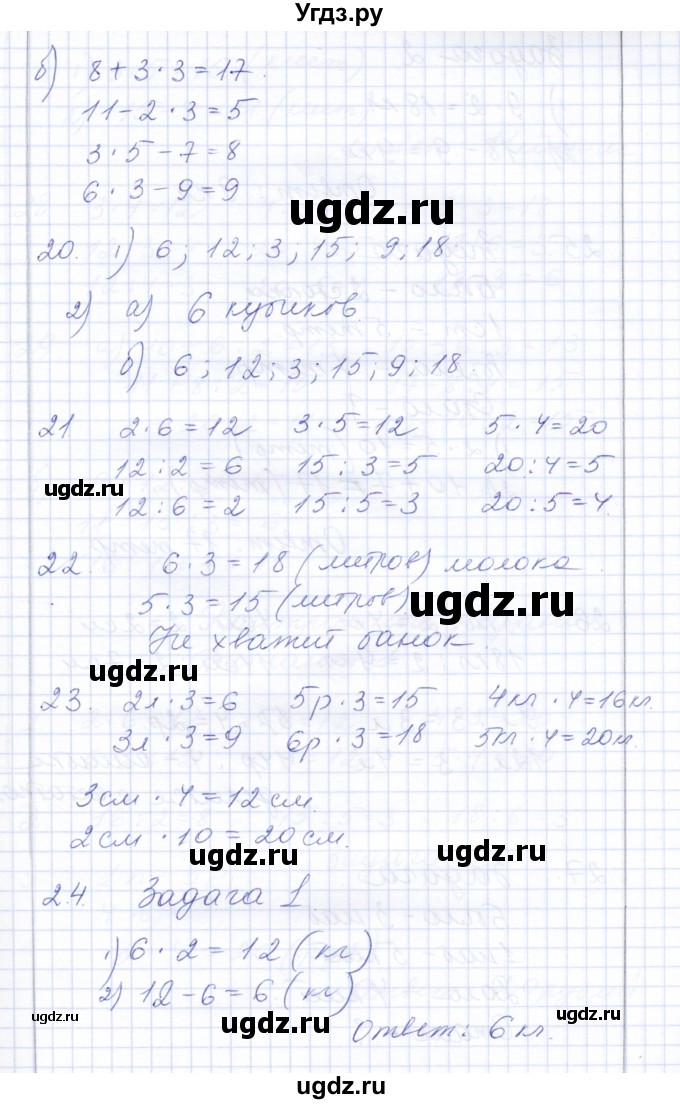 Угдз.ру
б) 8 + 3 · 3 = 17.
11 - 2 · 3 = 5
3 · 5 - 7 = 8
6 · 3 - 9 = 9
ugdz.ru
20. 1) 6; 12; 3; 15; 9; 18.
2) а) 6 кубиков
б) 6; 12; 3; 15; 9; 18.
21 2·6=12 3·5=12 5·4=20
12:2=6 15:3=5 20:4=5
ugdz.ru
12:6=2 15:5=3 20:5=4.
22. 6·3=18 (литров) молока.
5·3=15 (литров)
ugdz.ru
Не хватит банок.
ugdz.ru
23. 2л·3=6 5р·3=15 4кг·4=16кг.
3л·3=9 6р·3=18 5кг·4=20кг.
3см·4=12см.
2см·10=20см.
ugdz.ru ugdz.ru
24. Задача 1
1) 6·2=12 (кг)
2) 12-6=6 (кг)
ugdz.ru ugdz.ru ugdz.ru
Ответ: 6кг.
ugdz.ru